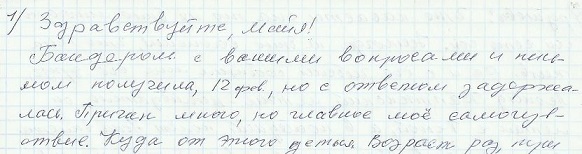 1/ Здравствуйте, Майя!
Бандероль с вашими вопросами и пись-
мом получила, 12 фев., но с ответом задержа-
лась. Причин много, но главное моё самочув-
ствие. Куда от этого деться. Возраст раз, при